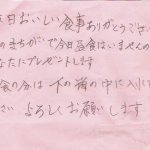 日おいしい食事ありがとうござい
のまちがいで今日昼食はいませんの
なたにプレゼントします
食の分は 下の箱の中に入れ
さい よろしくお願いします